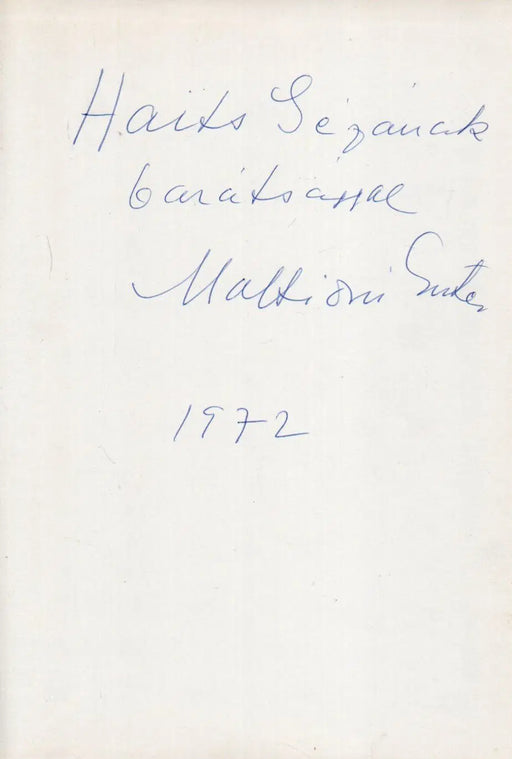 Haits Gézának
barátsággal
Mattioni Eszter
1972